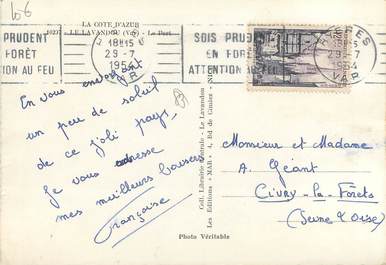 LA COTE D'AZUR
LE LAVANDOU (Var) - Le Port
PRUDENT
FORÊT
TION AU FEU
18H15
29-7
1954
VAR
SOIS PRUDENT
EN FORÊT
ATTENTION AU FEU
1954
VAR
En vous envoyant
un peu de soleil
de ce joli pays,
Je vous adresse
mes meilleurs baisers
Françoise
Coll. Librairie Centrale - Le Lavandou
Les Editions "MAR" - 4, Bd de Cimiez - NICE
Monsieur et Madame
A. Géant
Civry-la-Forêts
(Seine & Oise)
Photo Véritable